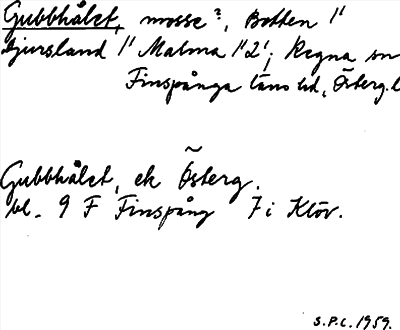 Gubbhålet, mosse?, Botten 1/
Bjursland 1/ Malma 1/2; Regna sn
Finspånga läns hd, Österg. l
Gubbhålet, ek Österg.
bl. 9 F Finspång 7 i Klöv.
S.P.C. 1959.